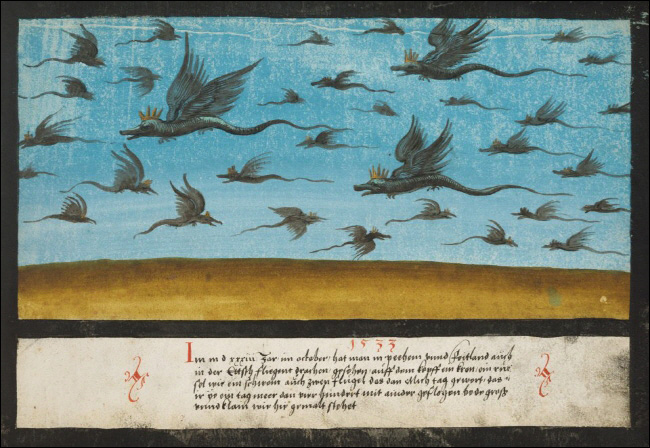 1533
Im m d xxxiii Jar im october hat man in peehem vnnd Foitland auch
in der Etisch fliegent trachen gesehen auff dem kopff ein kron ein rüs
sel wie ein schwein auch zwen flügel das dan etlich tag gewert das
er ye ein tag meer dan vier hundert mit ainder gefloghen bede gross
vnnd klain wie hir gemalt stehet